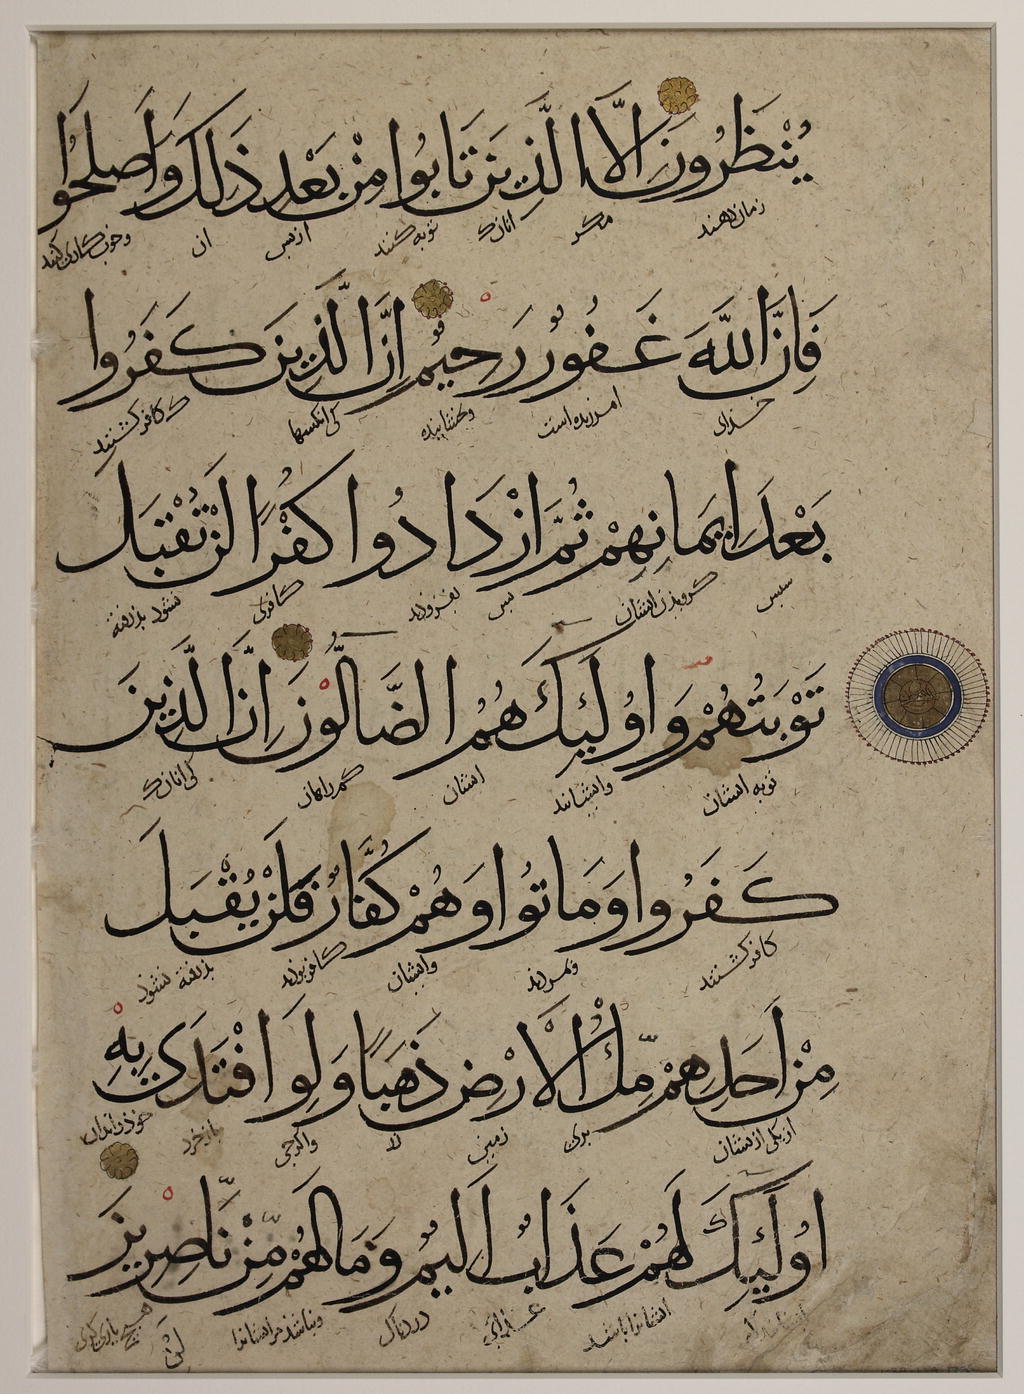 يُنْظَرُونَ اِلَّا الَّذِينَ تَابُوا مِنْ بَعْدِ ذَلِكَ وَاَصلَحُوا
زمان دهند مگر آنانک توبه کنند از پس آن و خوب کاری کنند
فَاِنَّ اللَّهَ غَفُورٌ رَحِيمٌ اِنَّ الَّذِينَ كَفَرُوا
خدای آمرزیده است و بخشاینده کی آنکسها کی کافر گشتند
بَعْدَ اِيمَانِهِمْ ثُمَّ ازْدَادُوا كُفْرًا لَنْ تُقْبَلَ
سپس گرویدن ایشان پس بفزودند کافری نشود پذرفته
تَوْبَتُهُمْ وَاُولَئِكَ هُمُ الضَّالُّونَ اِنَّ الَّذِينَ
توبه ایشان و ایشانند ایشان گم راهان کی آنانک
كَفَرُوا وَمَاتُوا وَهُمْ كُفَّارٌ فَلَنْ يُقْبَلَ
کافر گشتند و مردند و ایشان کافر بودند پذرفته نشود
مِنْ اَحَدِهِمْ مِّلْءُ الْاَرْضِ ذَهَبًا وَلَوِ افْتَدَى بِهِ
از یکی ازیشان پری زمین زر و اگرچی بازخرد خوذ را بدان
اُولَئِكَ لَهُمْ عَذَابٌ اَلِيمٌ وَمَا لَهُمْ مِّنْ نَّاصِرِينَ
ایشانرا باشد عذابی دردناک و نباشد مر ایشانرا هیچ یاری گری